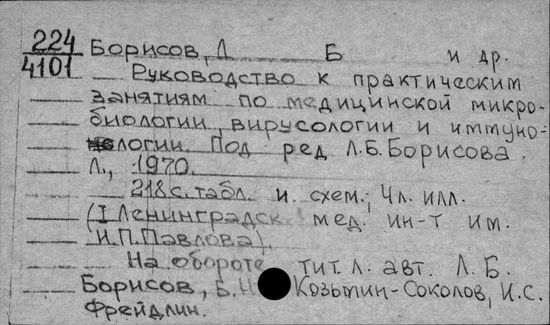 224
4101
Борисов, Л Б и др.
Руководство к практическим
занятиям по медицинской микро-
биологии, вирусологии и иммуно-
логии. Под ред Л.Б.Борисова.
Л., 1970.
218 с. табл. и схем.; 4 л. илл.
(I Ленинградск. мед. ин-т им.
И.П.Павлова).
На обороте тит. л. авт. Л.Б.
Борисов, Б.Н Козьмин-Соколов, И.С.
Фрейдлин.